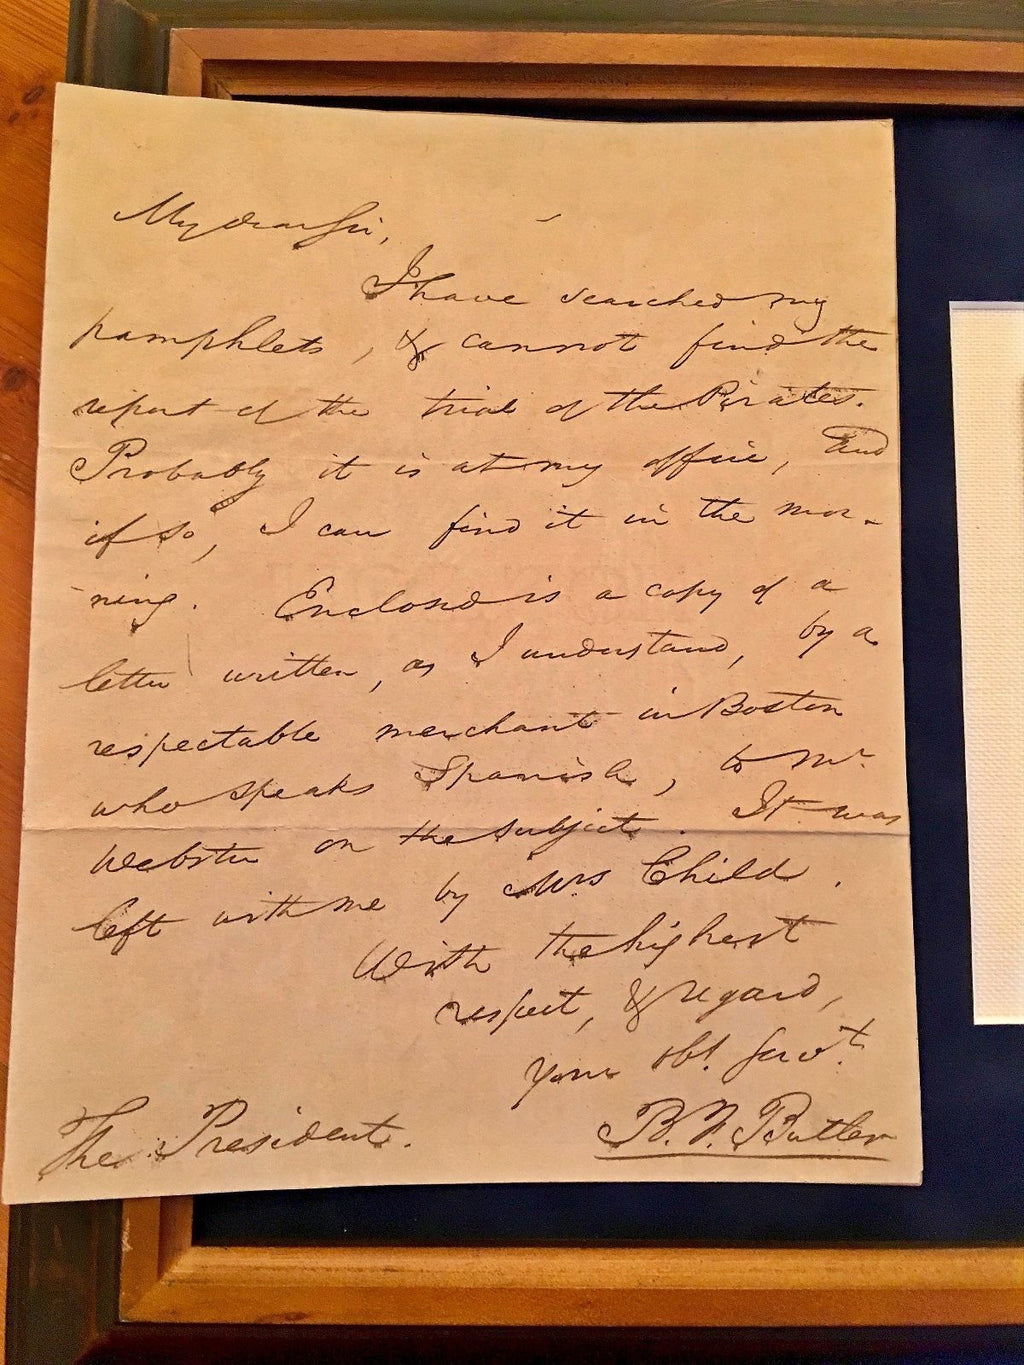 My dear Sir,
I have searched my
pamphlets, & cannot find the
report of the trial of the Pirates.
Probably it is at my office, and
if so, I can find it in the mor-
ning. Enclosed is a copy of a
letter written, as I understand, by a
respectable merchant in Boston
who speaks Spanish, to Mr.
Webster on the subject. It was
left with me by Mrs Child.
With the highest
respect, & regard,
Your obt. Servt.
B. F. Butler
The President.